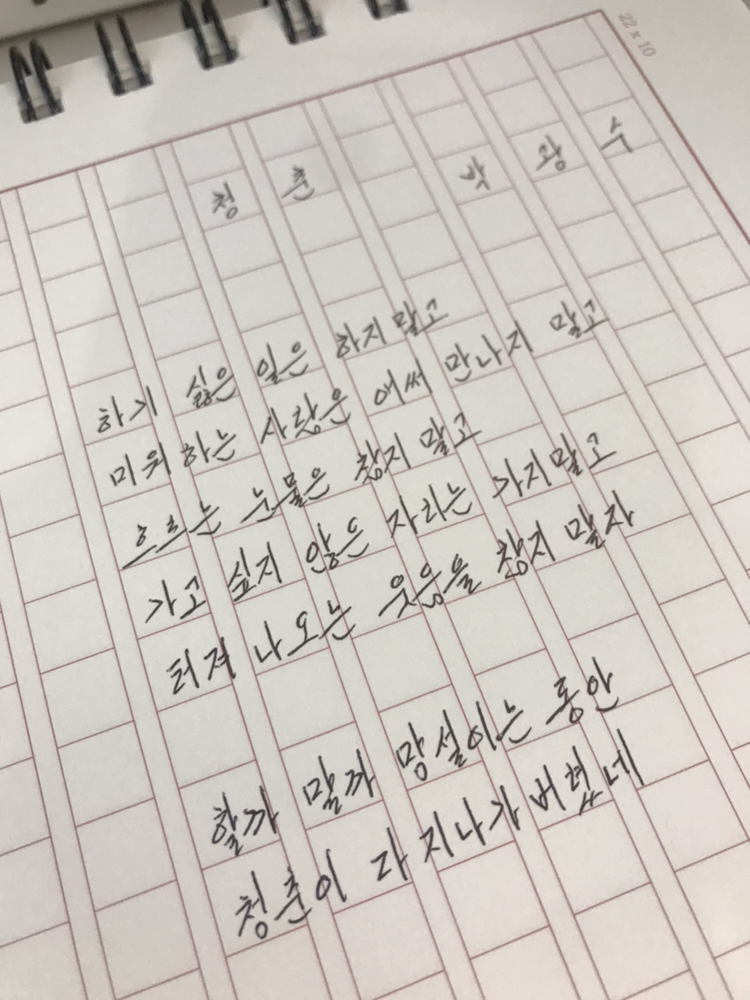 22 × 10
청춘 박광수
하기 싫은 일은 하지 말고
미워하는 사람은 애써 만나지 말고
흐르는 눈물은 참지 말고
가고 싶지 않은 자리는 가지말고
터져 나오는 웃음을 참지 말자
할까 말까 망설이는 동안
청춘이 다 지나가 버렸네